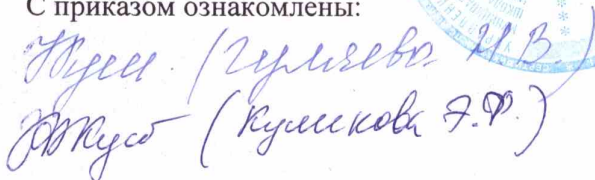 С приказом ознакомлены:
(Гуляева Н.В.)
(Куликова Э.Ф.)